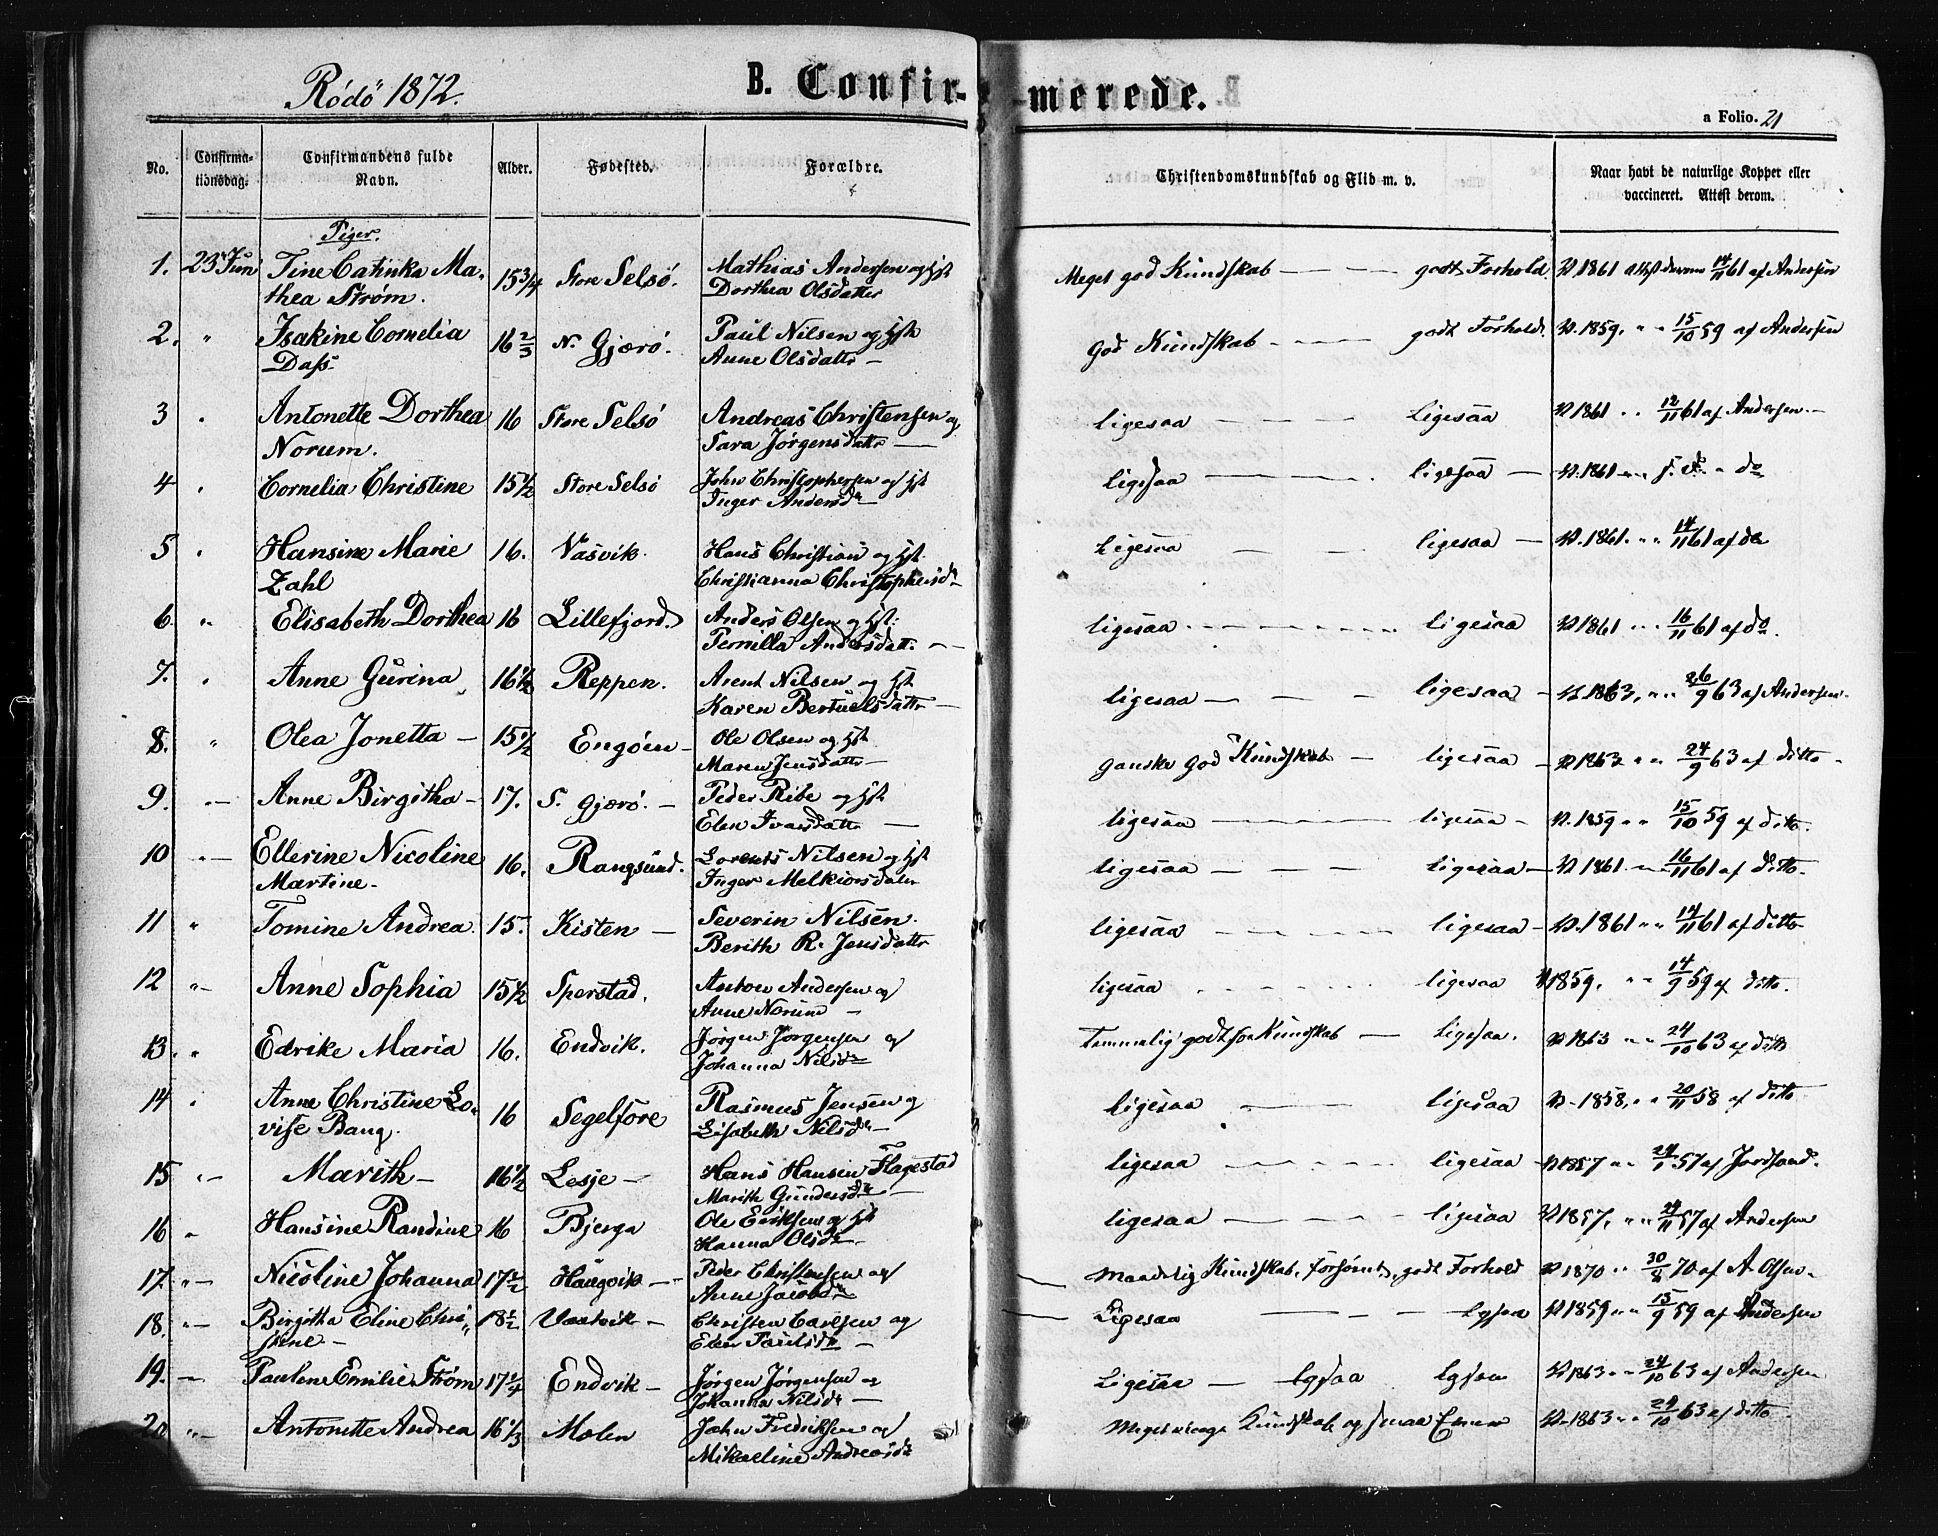 Rödö 1872.
B. Confir-merede.
a Folio. 21
No.
Confirma-tionsdag.
Confirmandens fulde Navn.
Alder.
Fødested.
Forældre.
Christendomskundskab og Flid m. v.
Naar havt de naturlige Kopper eller vaccineret. Attest derom.
Piger.
1. 23 Juni Tine Catinka Ma- 15 3/4 Store Selsö. Mathias Andersen og Hst Meget god Kundskab — godt Forhold. V. 1861 attest derom 14/11 61 af Andersen
thea Strøm. Dorthea Olsdatter
2. " Isakine Cornelia 16 2/3 N. Gjærö. Paul Nilsen og Hst God Kundskab — godt Forhold. V. 1859. " " 15/10 59 af Andersen
Dass. Anne Olsdattr —
3 " Antonette Dorthea 16 Store Selsö Andreas Christensen og ligesaa — Ligesaa V. 1861 " " 12/11 61 af Andersen.
Norum. Sara Jørgensdattr —
4 " Cornelia Christine 15 1/2 Store Selsö John Christophersen og Hst ligesaa — ligesaa — V. 1861 " " s. d. " do
Inger Andersdr
5 " Hansine Marie 16. Vasvik. Hans Christian og Hst. Ligesaa — ligesaa — V. 1861. " " 14/11 61 af do
Zahl Christianna Christophersdr
6. " Elisabeth Dorthea 16 Lillefjord. Anders Olsen og Hst. ligesaa — ligesaa V. 1861 " " 16/11 61 af do.
Pernilla Andersdatt. —
7. " Anne Gurina 16 1/2 Reppen. Arent Nilsen og Hst ligesaa — ligesaa — V. 1863. " " 26/9 63 af Andersen.
Karen Bertuelsdattr —
8. " Olea Jonetta — 15 1/2 Engöen — Ole Olsen og Hst ganske god Kundskab — ligesaa — V. 1863 " " 24/9 63 af ditto
Maren Jensdattr —
9. " Anne Birgitha — 17. S. Gjærö. — Peder Ribe og Hst ligesaa — ligesaa — V. 1859 " " 15/10 59 af ditto.
Elen Ivarsdattr —
10 " Ellerine Nicoline 16. Rangsund. Lorents Nilsen og Hst ligesaa — ligesaa — V. 1861 " " 16/11 61 af ditto.
Martine. Inger Melkiorsdatter
11 " Tomine Andrea. 15. Kisten — Severin Nilsen. ligesaa — ligesaa — V. 1861 " " 14/11 61 af ditto
Berith R. Jensdattr
12 " Anne Sophia 15 1/2 Sperstad. Anton Andersen og ligesaa — ligesaa V. 1859. " " 14/9 59 af ditto.
Anne Norum —
13. " Edrike Maria 16. Endvik. Jørgen Jørgensen og Temmelig godt for Kundskab — ligesaa. V. 1863 " " 24/10 63 af ditto
Johanna Nilsdr
14 " Anne Christine Lo- 16 Segelfore Rasmus Jensen og ligesaa — ligesaa V. 1858. " " 20/11 58 af ditto
vise Bang. Lisabeth Nilsdr —
15 " Marith — 16 1/2 Lesje — Hans Hansen Flagestad ligesaa — ligesaa V. 1857 " " 24/1 57 af
Marith Gundersdr —
16 " Hansine Randine 16 Bjerga Ole Eriksen og Hst ligesaa — ligesaa V. 1857, " " 24/11 57 af Andersen
Hanna Olsdr.
17. " Nicoline Johanna 17 1/2 Haugvik — Peder Christensen og Maadelig Kundskab, forsømt, godt Forhold V. 1870 " 30/8 70 af A Olsen
Anne Jacobsdr
18. " Birgitha Eline Chri- 18 1/2 Vaatvik — Christen Carlsen og Ligesaa — Lgsaa V. 1859 " " 15/9 59 af Andersen
stine — Elen Paulsdr —
19. — Pauline Emilie Strøm 17 1/4 Endvik — Jørgen Jørgensen og Ligesaa — lgsaa lgsaa V. 1863 " " 24/10 63 af Andersen
Johanna Nilsdr —
20 " Antonette Andrea 16 1/3 Molen John Fredriksen og Meget svage Kundskab og smaa Evner V. 1863 " " 24/10 63 af ditto
Mikaeline Andreasdr